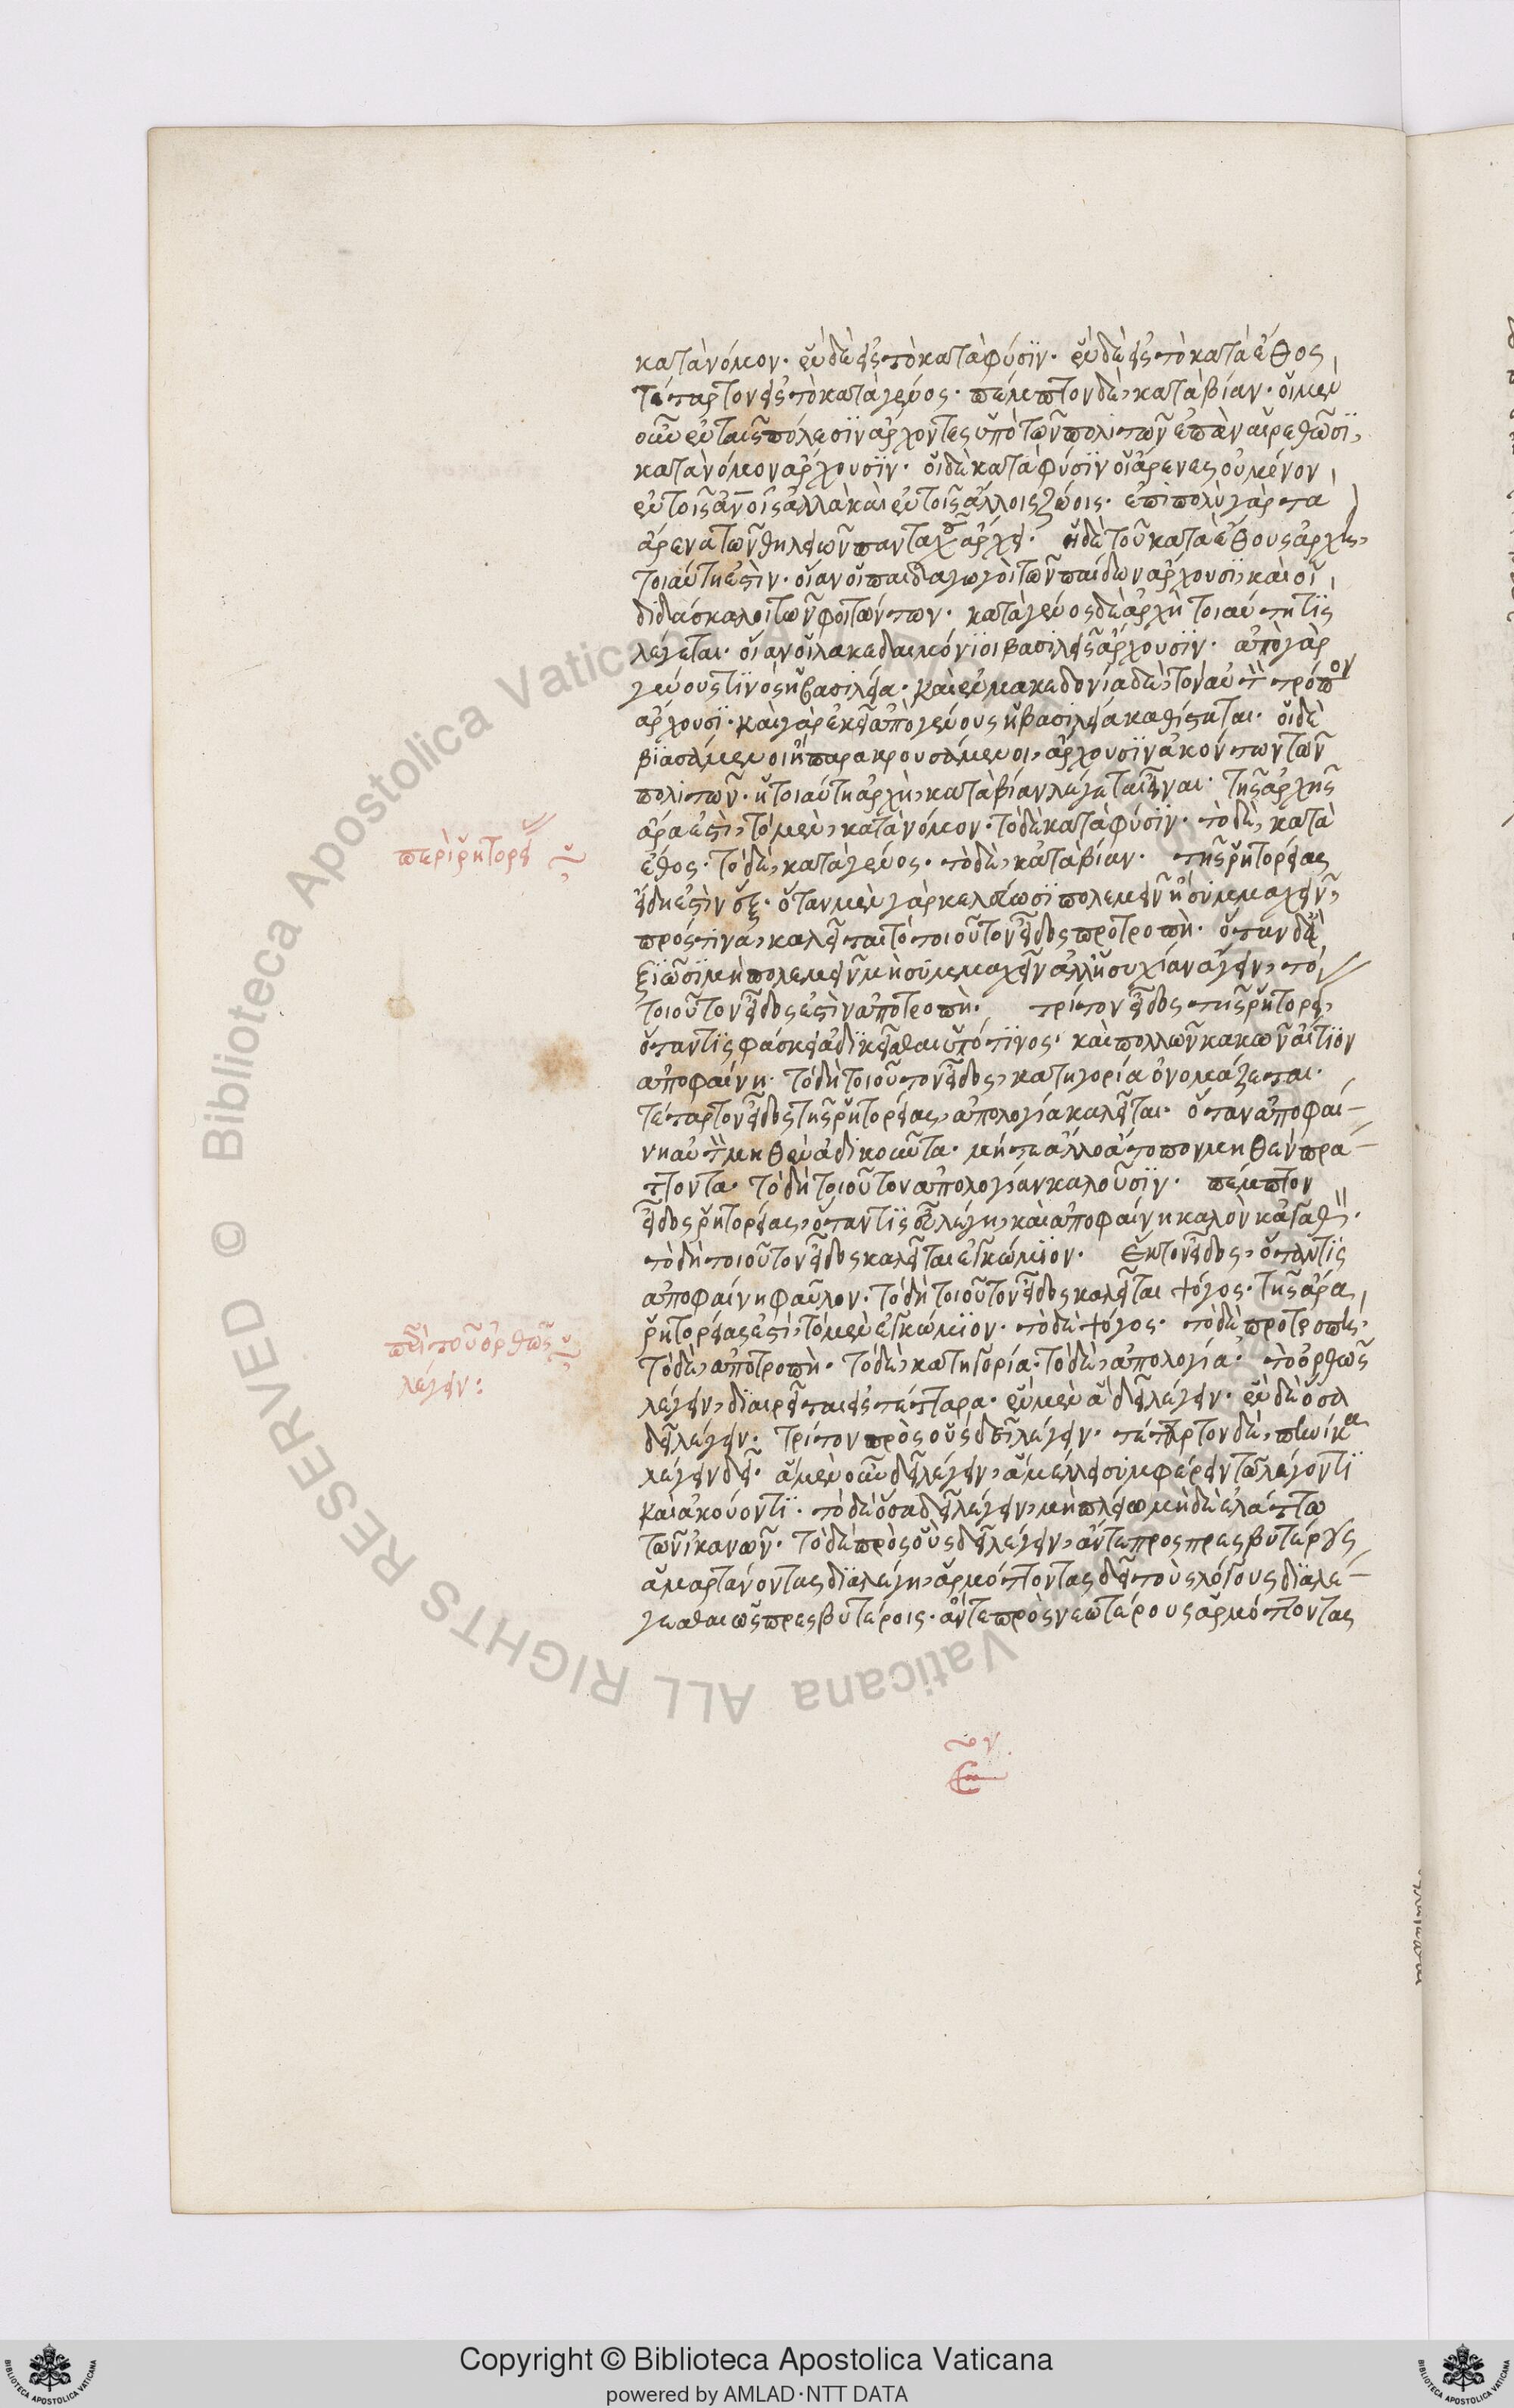 κατὰ νόμον. ἓν δὲ εἰς τὸ κατὰ φύσιν. ἓν δὲ εἰς τὸ κατὰ ἔθος
τέταρτον εἰς τὸ κατὰ γένος. πέμπτον δὲ, κατὰ βίαν. οἱ μὲν
οὖν ἐν ταῖς πόλεσιν ἄρχοντες ὑπὸ τῶν πολιτῶν ἐπὰν αἱρεθῶσι,
κατὰ νόμον ἄρχουσιν. οἱ δὲ κατὰ φύσιν οἱ ἄρενες οὐ μόνον
ἐν τοῖς ἀνοις ἀλλὰ καὶ ἐν τοῖς ἄλλοις ζώοις. ἐπιπολὺ γὰρ τὰ
ἄρενα τῶν θηλειῶν πανταχοῦ ἄρχει. ἡ δὲ τοῦ κατὰ ἔθους ἀρχὴ,
τοιαύτη ἐστὶν. οἷαν οἱ παιδαγωγοὶ τῶν παίδων ἄρχουσι, καὶ οἱ
διδάσκαλοι τῶν φοιτώντων. κατὰ γένος δὲ ἀρχὴ τοιαύτη τίς
λέγεται. οἷαν οἱ λακεδαιμόνιοι βασιλεῖς ἄρχουσιν. ἀπὸ γὰρ
γένους τινὸς ἡ βασιλεία. καὶ ἐν μακεδονία δὲ, τὸν αὐτὸν τρόπον
ἄρχουσι. καὶ γὰρ ἐκεῖ ἀπὸ γένους ἡ βασιλεία καθίσταται. οἱ δὲ
βιασάμενοι ἢ παρακρουσάμενοι, ἄρχουσιν ἀκόντων τῶν
πολιτῶν. ἡ τοιαύτη ἀρχὴ, κατὰ βίαν λέγεται εἶναι. τῆς ἀρχῆς
ἄρα ἐστὶ, τὸ μὲν, κατὰ νόμον. τὸ δὲ κατὰ φύσιν. τὸ δὲ, κατὰ
περὶ ῥητορεί
ἔθος. τὸ δὲ, κατὰ γένος. τὸ δὲ, κατὰ βίαν. τῆς ῥητορείας
εἴδη ἐστὶν ἕξ. ὅταν μὲν γὰρ κελεύωσι πολεμεῖν ἢ συμμαχεῖν,
πρός τινα, καλεῖται τὸ τοιοῦτον εἶδος προτροπὴ. ὅταν δὲ ἀ
ξιῶσι μὴ πολεμεῖν μὴ συμμαχεῖν ἀλλ' ἡσυχίαν ἄγειν, τὸ
τοιοῦτον εἶδος ἐστὶν ἀποτροπὴ. τρίτον εἶδος τῆς ῥητορεί,
ὅταν τίς φάσκει ἀδικεῖσθαι ὑπό τινος. καὶ πολλῶν κακῶν αἴτιον
ἀποφαίνη. τὸ δὴ τοιοῦτον εἶδος, κατηγορία ὀνομάζεται.
τέταρτον εἶδος τῆς ῥητορείας, ἀπολογία καλεῖται. ὅταν ἀποφαί-
νη αὐτὸν μηθὲν ἀδικοῦντα. μήτε ἄλλο ἄτοπον μηθὲν πρά-
ττοντα. τὸ δὴ τοιοῦτον ἀπολογίαν καλοῦσιν. πέμπτον
εἶδος ῥητορείας, ὅταν τίς εὖ λέγη, καὶ ἀποφαίνη καλὸν κἀγαθὸν.
τὸ δὴ τοιοῦτον εἶδος καλεῖται ἐγκώμιον. ἕκτον εἶδος, ὅταν τίς
ἀποφαίνη φαῦλον. τὸ δὴ τοιοῦτον εἶδος καλεῖται ψόγος. τῆς ἄρα
ῥητορείας ἐστὶ, τὸ μὲν ἐγκώμιον. τὸ δὲ ψόγος. τὸ δὲ προτροπὴ,
περὶ τοῦ ὀρθῶς
τὸ δὲ, ἀποτροπὴ. τὸ δὲ, κατηγορία. τὸ δὲ, ἀπολογία. τὸ ὀρθῶς
λέγειν:
λέγειν, διαιρεῖται εἰς τέτταρα. ἓν μὲν ἃ δεῖ λέγειν. ἓν δὲ ὅσα
δεῖ λέγειν. τρίτον πρὸς οὓς δεῖ λέγειν. τέταρτον δὲ, πηνίκα
λέγειν δεῖ. ἃ μὲν οὖν δεῖ λέγειν, ἃ μέλλει συμφέρειν τῶ λέγοντι
καὶ ἀκούοντι. τὸ δὲ ὅσα δεῖ λέγειν, μὴ πλείω μὴ δὲ ἐλάττω
τῶν ἱκανῶν. τὸ δὲ πρὸς οὓς δεῖ λέγειν, ἄντε προς πρεσβυτέρους
ἁμαρτάνοντας διαλέγη, ἁρμόττοντας δεῖ τοὺς λόγους διαλέ-
γεσθαι ὡς πρεσβυτέροις. ἄντε πρὸς νεωτέρους ἁρμόττοντας